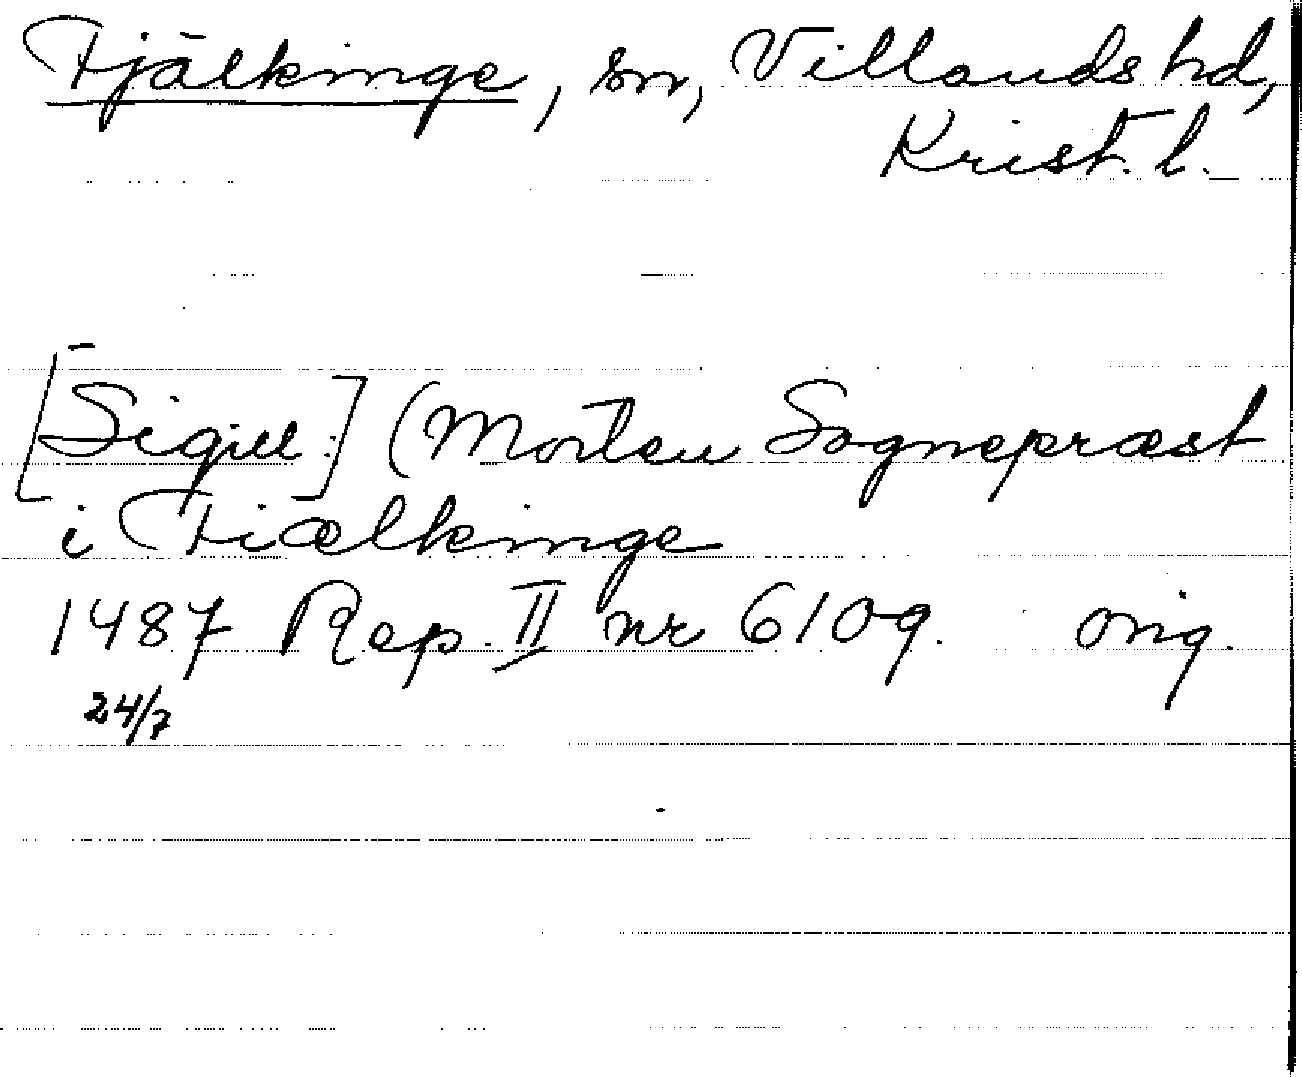 Fjälkinge, sn, Villands hd,
Krist. l.
[Sigill:] (Morten Sognepræst
i Fiælkinge
1487 Rep. II nr 6109. orig.
24/7